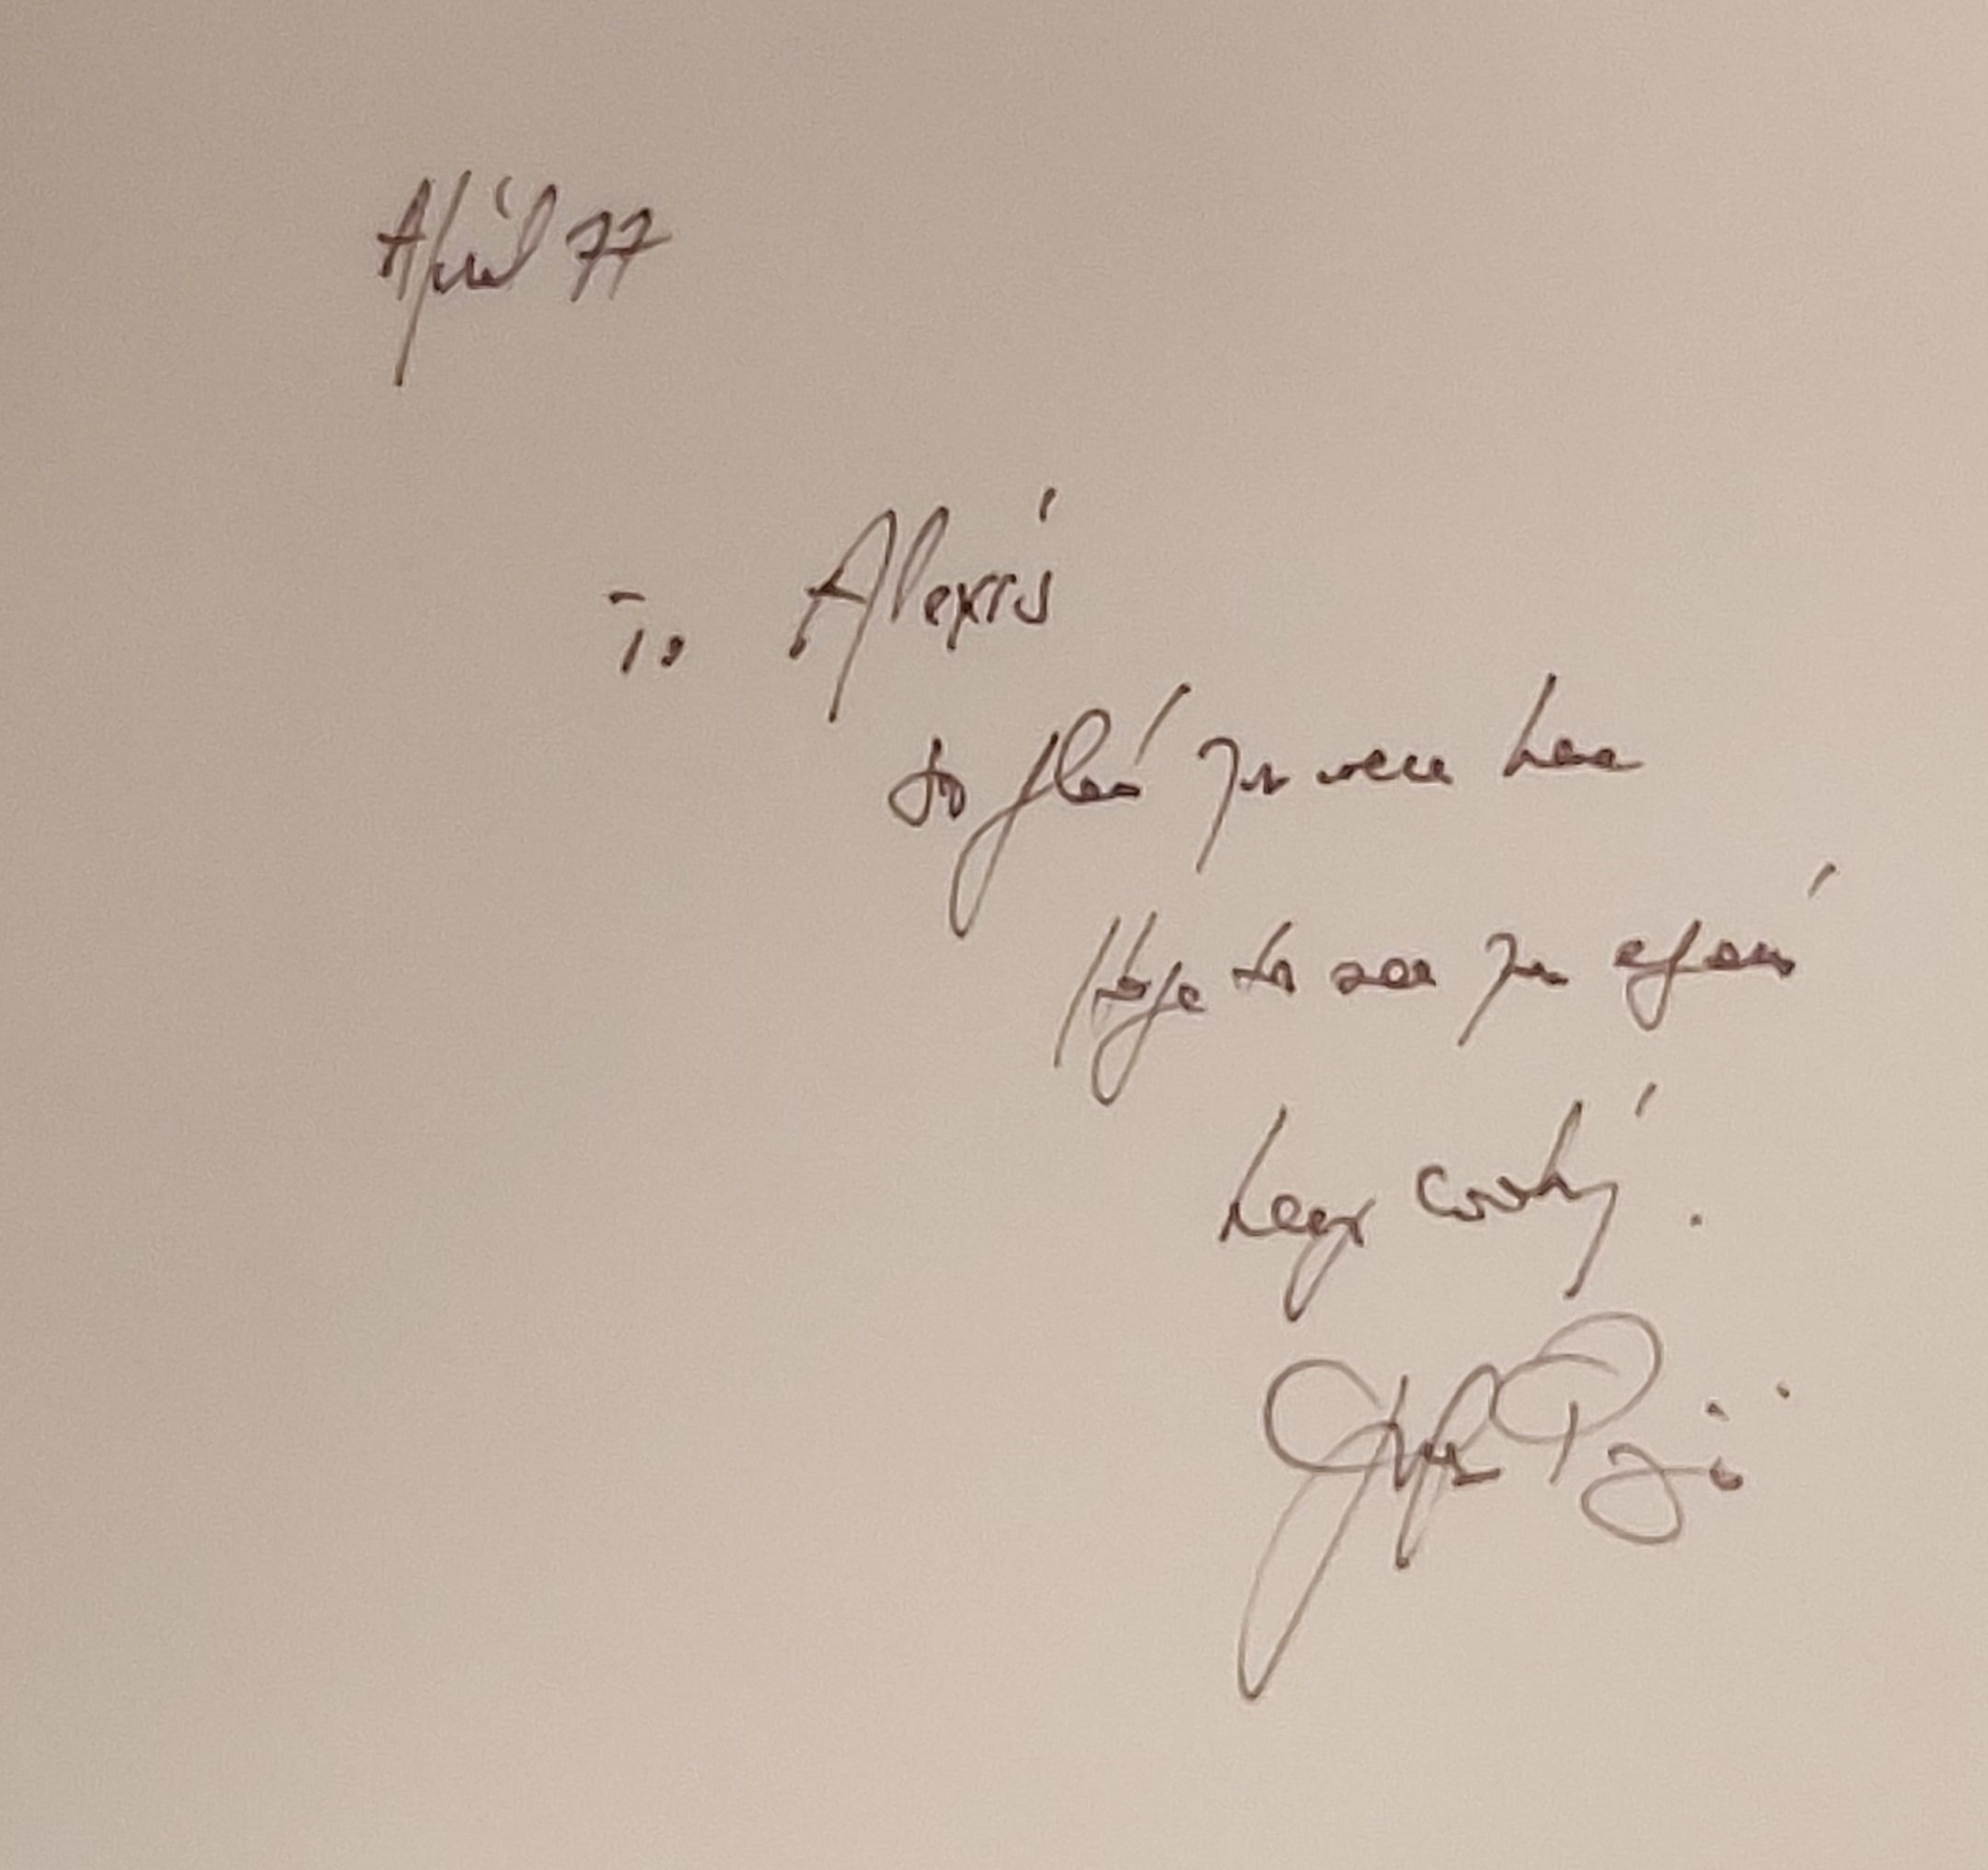 April 77
To Alexis
so glad you were here
Hope to see you again
Keep cooking.
Jacques Pépin